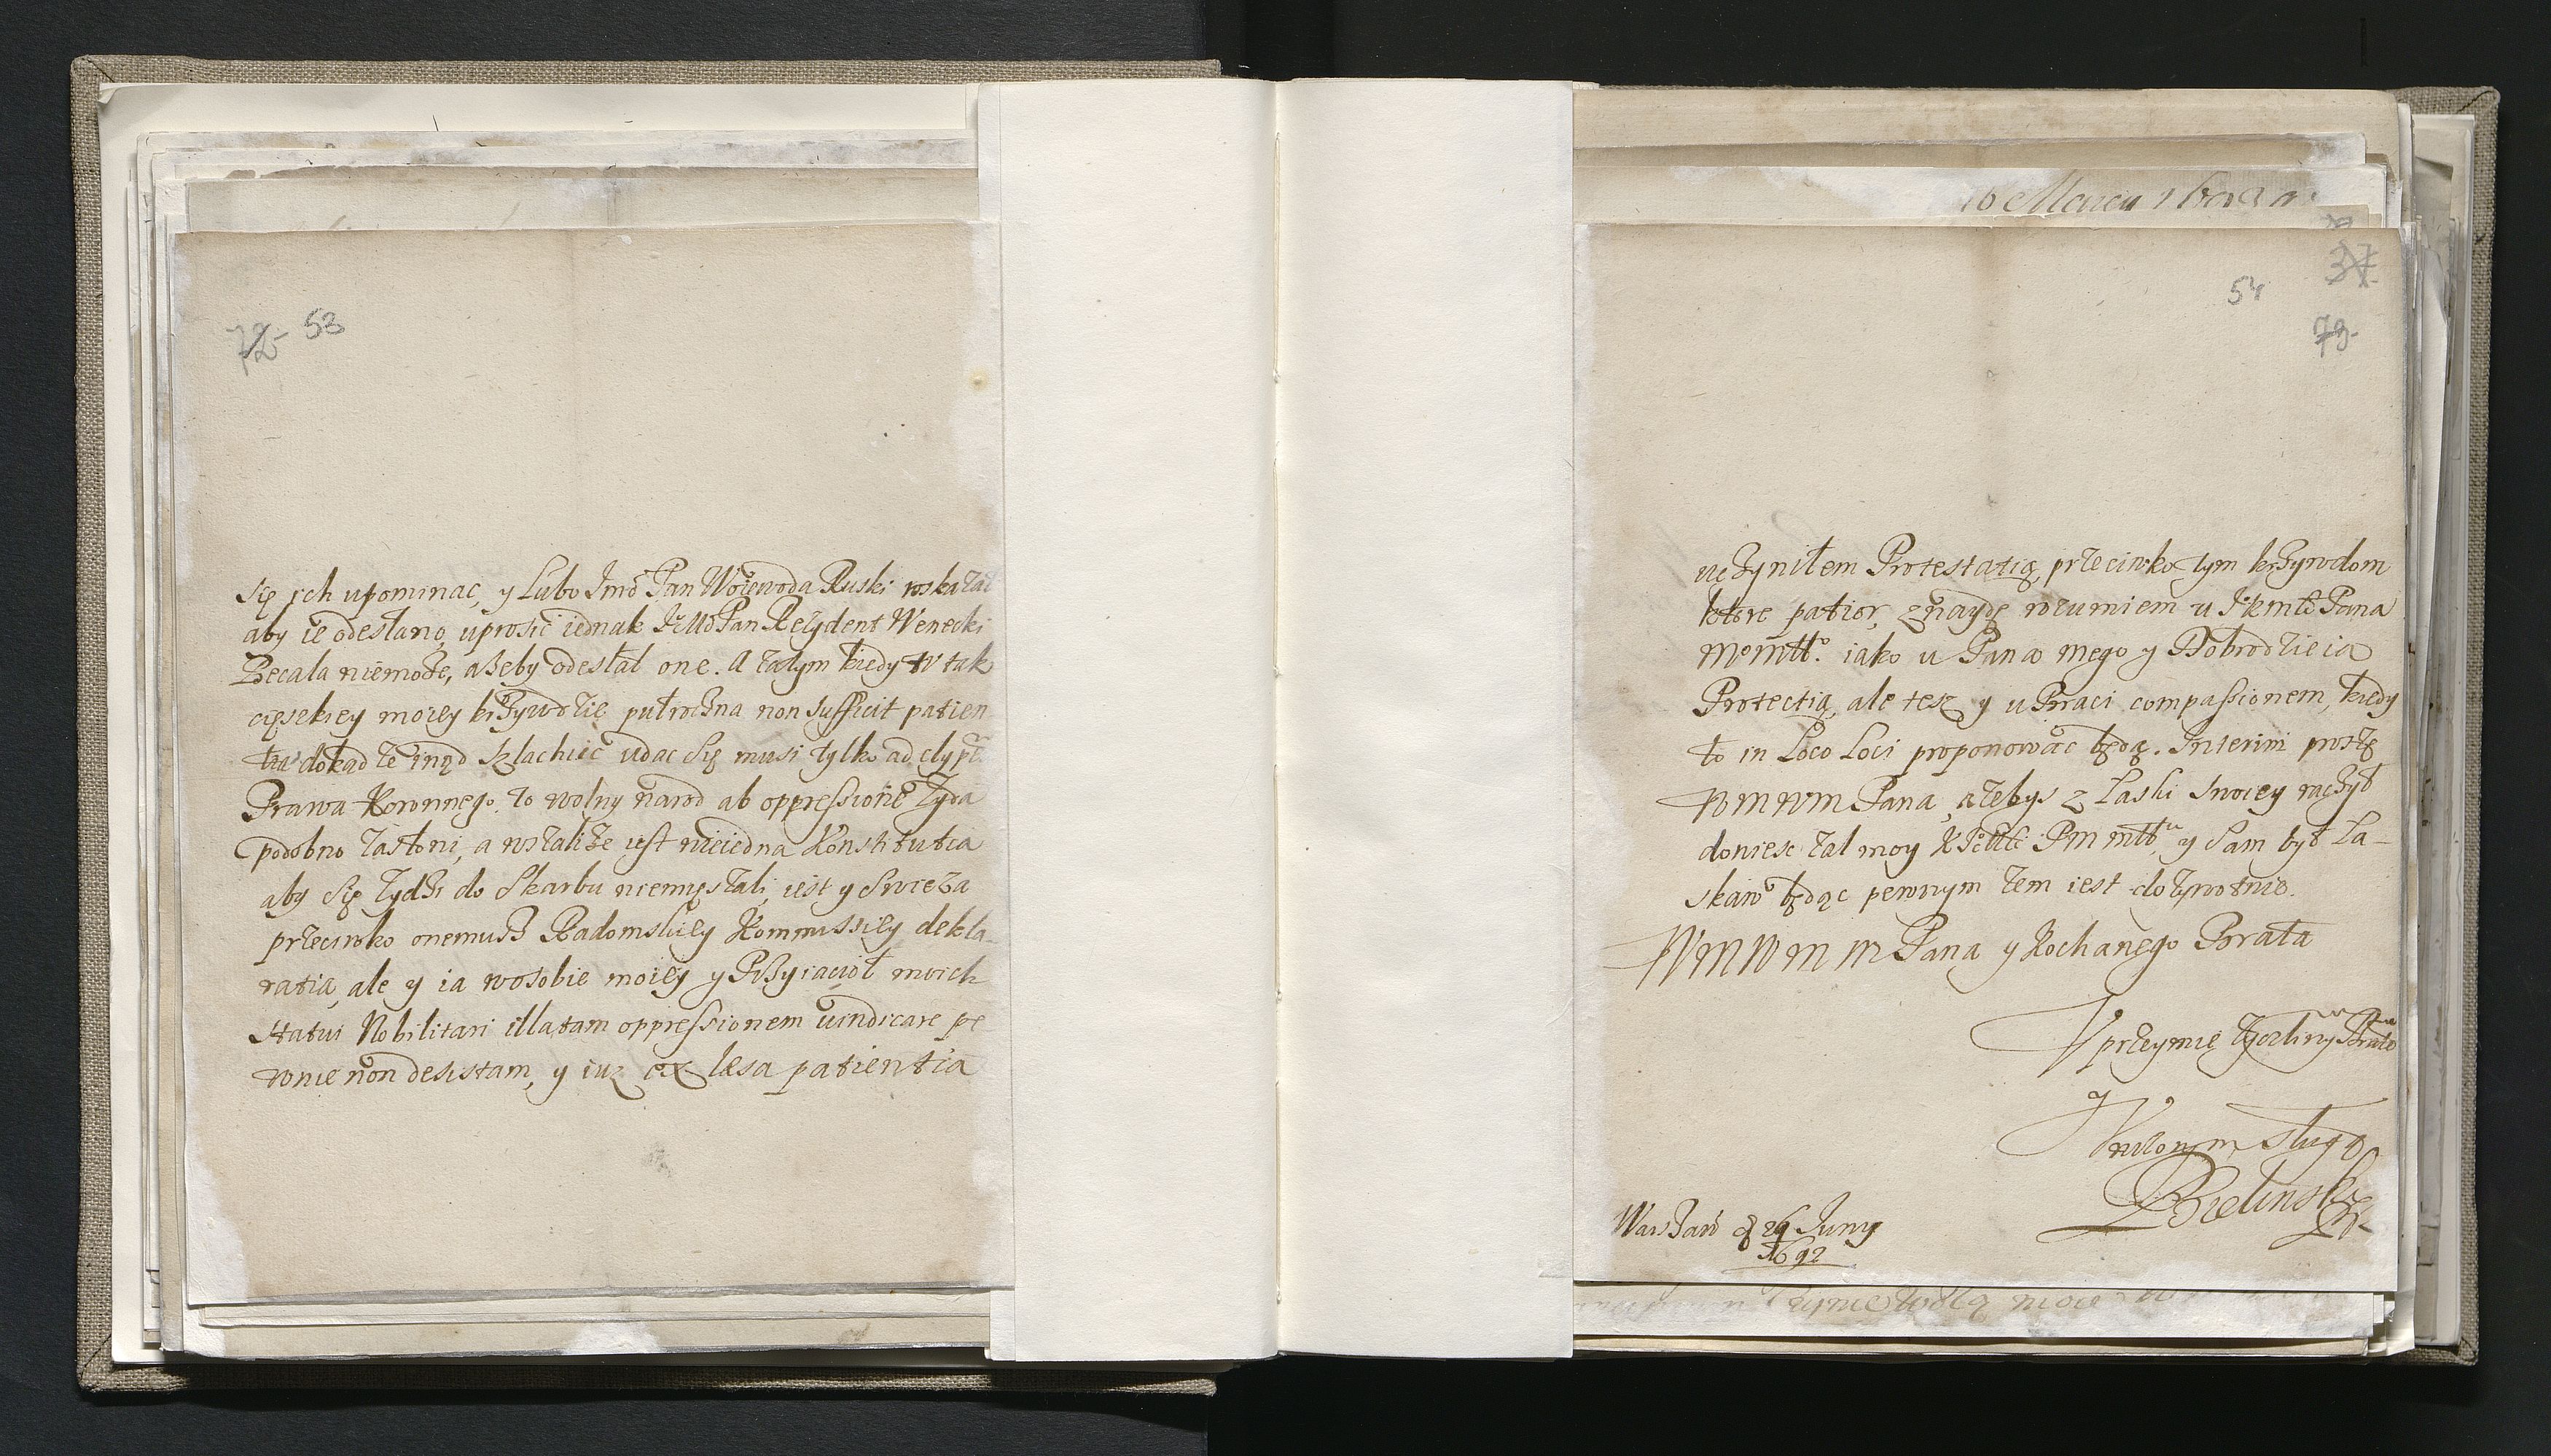 72 53
się jch upominac, y Lubo Jmo Pan Woiewoda Ruski roskazał
aby ie odesłano, uprosic iednak JeMo Pan Rezydent Wenecki
Becala niemoże, ażeby odesłał one. A zatym kiedy w tak
cięskiey moiey krzywdzie putroczna non sufficit patien
tia dokąd ze inąd szlachcic udac się musi tylko ad clyp.
Prawa Koronnego, to wolny narod ab oppressione Zyda
podobno zasłoni, a wszakże iest nieiedna Konstitutia
aby się zydzi do Skarbu niemięszali, iest y swieza
przeciwko onemusz Radomskiey Kommissiey dekla-
ratia, ale y ia wosobie moiey y Przyiacioł moich
Statui Nobilitari illatam oppressionem vindicare pe
wnie non desistam, y iuz ex læsa patientia
16 Marca
37
54
73
uczyniłem Protestatią, przeciwko tym krzywdom
ktore patior, znaydę rozumiem u JKmći Pana
Momłł. iako u Pana mego y Dobrodzieia
Protectią, ale tesz y u Braci compassionem, kiedy
to in Loco Loci proponowac będę. Interim proszę
WMWM Pana, ażebys z Łaski swoiey raczył
doniesc zal moy PM młł, y sam był Ła-
skaw będąc pewnym zem iest dozywotnie.
WMWMM Pana y Kochanego Brata
Uprzeymie Zyczliwy Brat
y
Unizonym sługą
Bielinsky
Warszaw d 26 Juny
1692